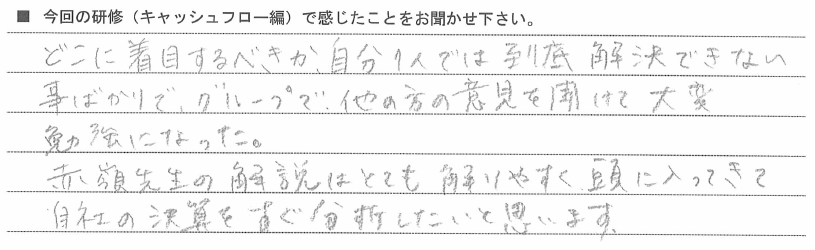 ■ 今回の研修（キャッシュフロー編）で感じたことをお聞かせ下さい。
どこに着目するべきか、自分1人では到底解決できない
事ばかりで、グループで、他の方の意見を聞けて大変
勉強になった。
赤嶺先生の解説はとても解りやすく、頭に入ってきて
自社の決算をすぐ分析したいと思います。